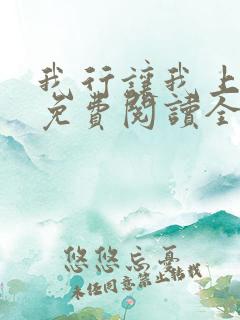 我行讓我上
免費閱讀全
悠悠忘憂
未经同意禁止转载